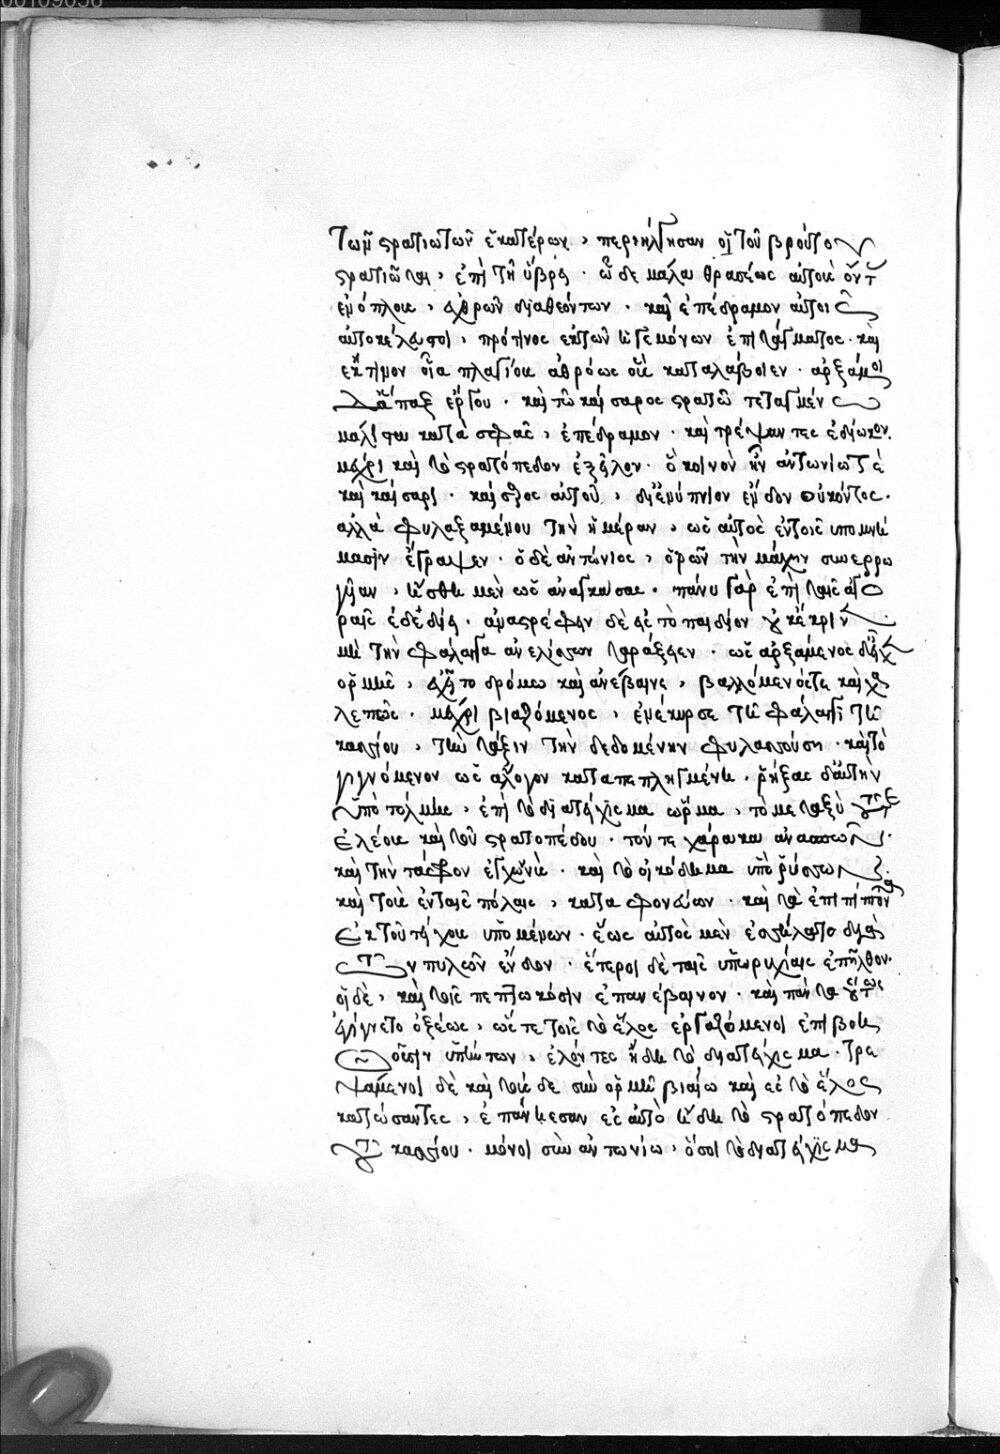 τῶν στρατιωτῶν ἑκατέρων, περιήλγησαν οἱ τοῦ βρούτου
στρατιῶται, ἐπὶ τῇ ὕβρει. ὧδε μάλα θρασέως αὐτοῖς ὄντων
ἐνόπλοις, ἐχθρῶν διαθεόντων. καὶ ἐπέδραμον αὐτοῖς
αὐτοκέλευστοι, πρό τινος ἐκ τῶν ἡγεμόνων ἐπιτάγματος. καὶ
ἔκτεινον οἷα πλαγίοις ἀθρόως οὓς καταλάβοιεν. ἀρξάμενοι
δ' ἅπαξ ἔργου. καὶ τῷ καίσαρος στρατῷ τεταγμένῳ
μάλιστα κατὰ σφᾶς, ἐπέδραμον. καὶ τρέψαντες ἐδίωκον.
μέχρι καὶ τὸ στρατόπεδον ἐξεῖλον. ὃ κοινὸν ἦν ἀντωνίῳ τὲ
καὶ καίσαρι. καίσαρος αὐτοῦ, δι' ἐνύπνιον ἔνδον οὐκ ὄντος.
ἀλλὰ φυλαξαμένου τὴν ἡμέραν, ὡς αὐτὸς ἐν τοῖς ὑπομνή
μασιν ἔγραψεν. ὁ δὲ ἀντώνιος, ὁρῶν τὴν μάχην συνερρω
γυῖαν, ἥσθη μὲν ὡς ἀναγκάσας. πάνυ γὰρ ἐπὶ ταῖς ἀγο
ραῖς ἐδεδίει. ἀναστρέφειν δὲ ἐς τὸ πεδίον οὐκ ἔκρινε.
μὴ τὴν φάλαγγα ἀνελίσσων ταράξειεν. ὡς ἀρξάμενος δὲ εἶχεν
ὁρμῆς, ἐχρῆτο δρόμῳ καὶ ἀνέβαινε, βαλλόμενός τε καὶ χα
λεπῶς. μέχρι βιαζόμενος, ἐνέκυρσε τῇ φάλαγγι τῇ
κασσίου, τὴν τάξιν τὴν δεδομένην φυλασσούσῃ. καὶ τὸ
γιγνόμενον ὡς ἄλογον καταπεπληγμένῃ. ῥήξας δ' αὐτὴν
ὑπὸ τόλμης, ἐπὶ τὸ διατείχισμα ὥρμα, τὸ μεταξὺ τοῦ τε
ἕλεος καὶ τοῦ στρατοπέδου. τόν τε χάρακα ἀνασπῶν.
καὶ τὴν τάφρον ἐγχωννύς. καὶ τὸ οἰκοδόμημα ὑπορύσσων.
καὶ τοὺς ἐν ταῖς πύλαις, καταφονεύων. καὶ τὰ ἐπιπίπτοντα
ἐκ τοῦ τείχους ὑπομένων. ἕως αὐτὸς μὲν ἐσήλατο διὰ
τῶν πυλῶν ἔνδον. ἕτεροι δὲ ταῖς ὑπωρυχίαις ἐπῆλθον.
οἱ δὲ, καὶ τοῖς πεπτωκόσιν ἐπανέβαινον. καὶ πάντα οὕτως
ἐγίγνετο ὀξέως, ὥστε τοῖς τὸ ἕλος ἐργαζομένοι ἐπιβοη
θοῦσιν ὑπήντων, ἑλόντες ἤδη τὸ διατείχισμα. τρε
ψάμενοι δὲ καὶ τούσδε σὺν ὁρμῇ βιαίῳ καὶ ἐς τὸ ἕλος
κατώσαντες, ἐπανῄεσαν ἐς αὐτὸ ἤδη τὸ στρατόπεδον
τοῦ κασσίου. μόνοι σὺν ἀντωνίῳ, ὅσοι τὸ διατείχισμα